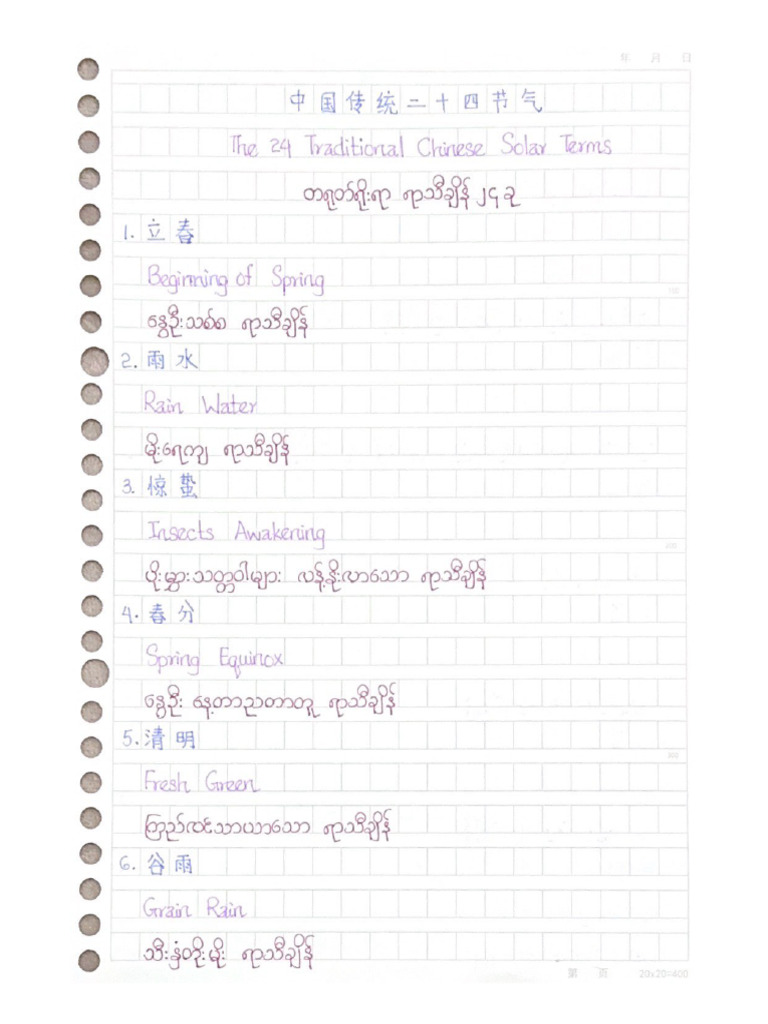 年 月 日
中国传统二十四节气
The 24 Traditional Chinese Solar Terms
တရုတ်ရိုးရာ ရာသီချိန် ၂၄ ခု
1. 立春
Beginning of Spring
နွေဦးသစ်စ ရာသီချိန်
2. 雨水
Rain Water
မိုးရေကျ ရာသီချိန်
3. 惊蛰
Insects Awakening
ပိုးမွှားသတ္တဝါများ လန့်နိုးလာသော ရာသီချိန်
4. 春分
Spring Equinox
နွေဦး နေ့တာညတာတူ ရာသီချိန်
5. 清明
Fresh Green
ကြည်လင်သာယာသော ရာသီချိန်
6. 谷雨
Grain Rain
သီးနှံတိုးမိုး ရာသီချိန်
第 页 20x20=400